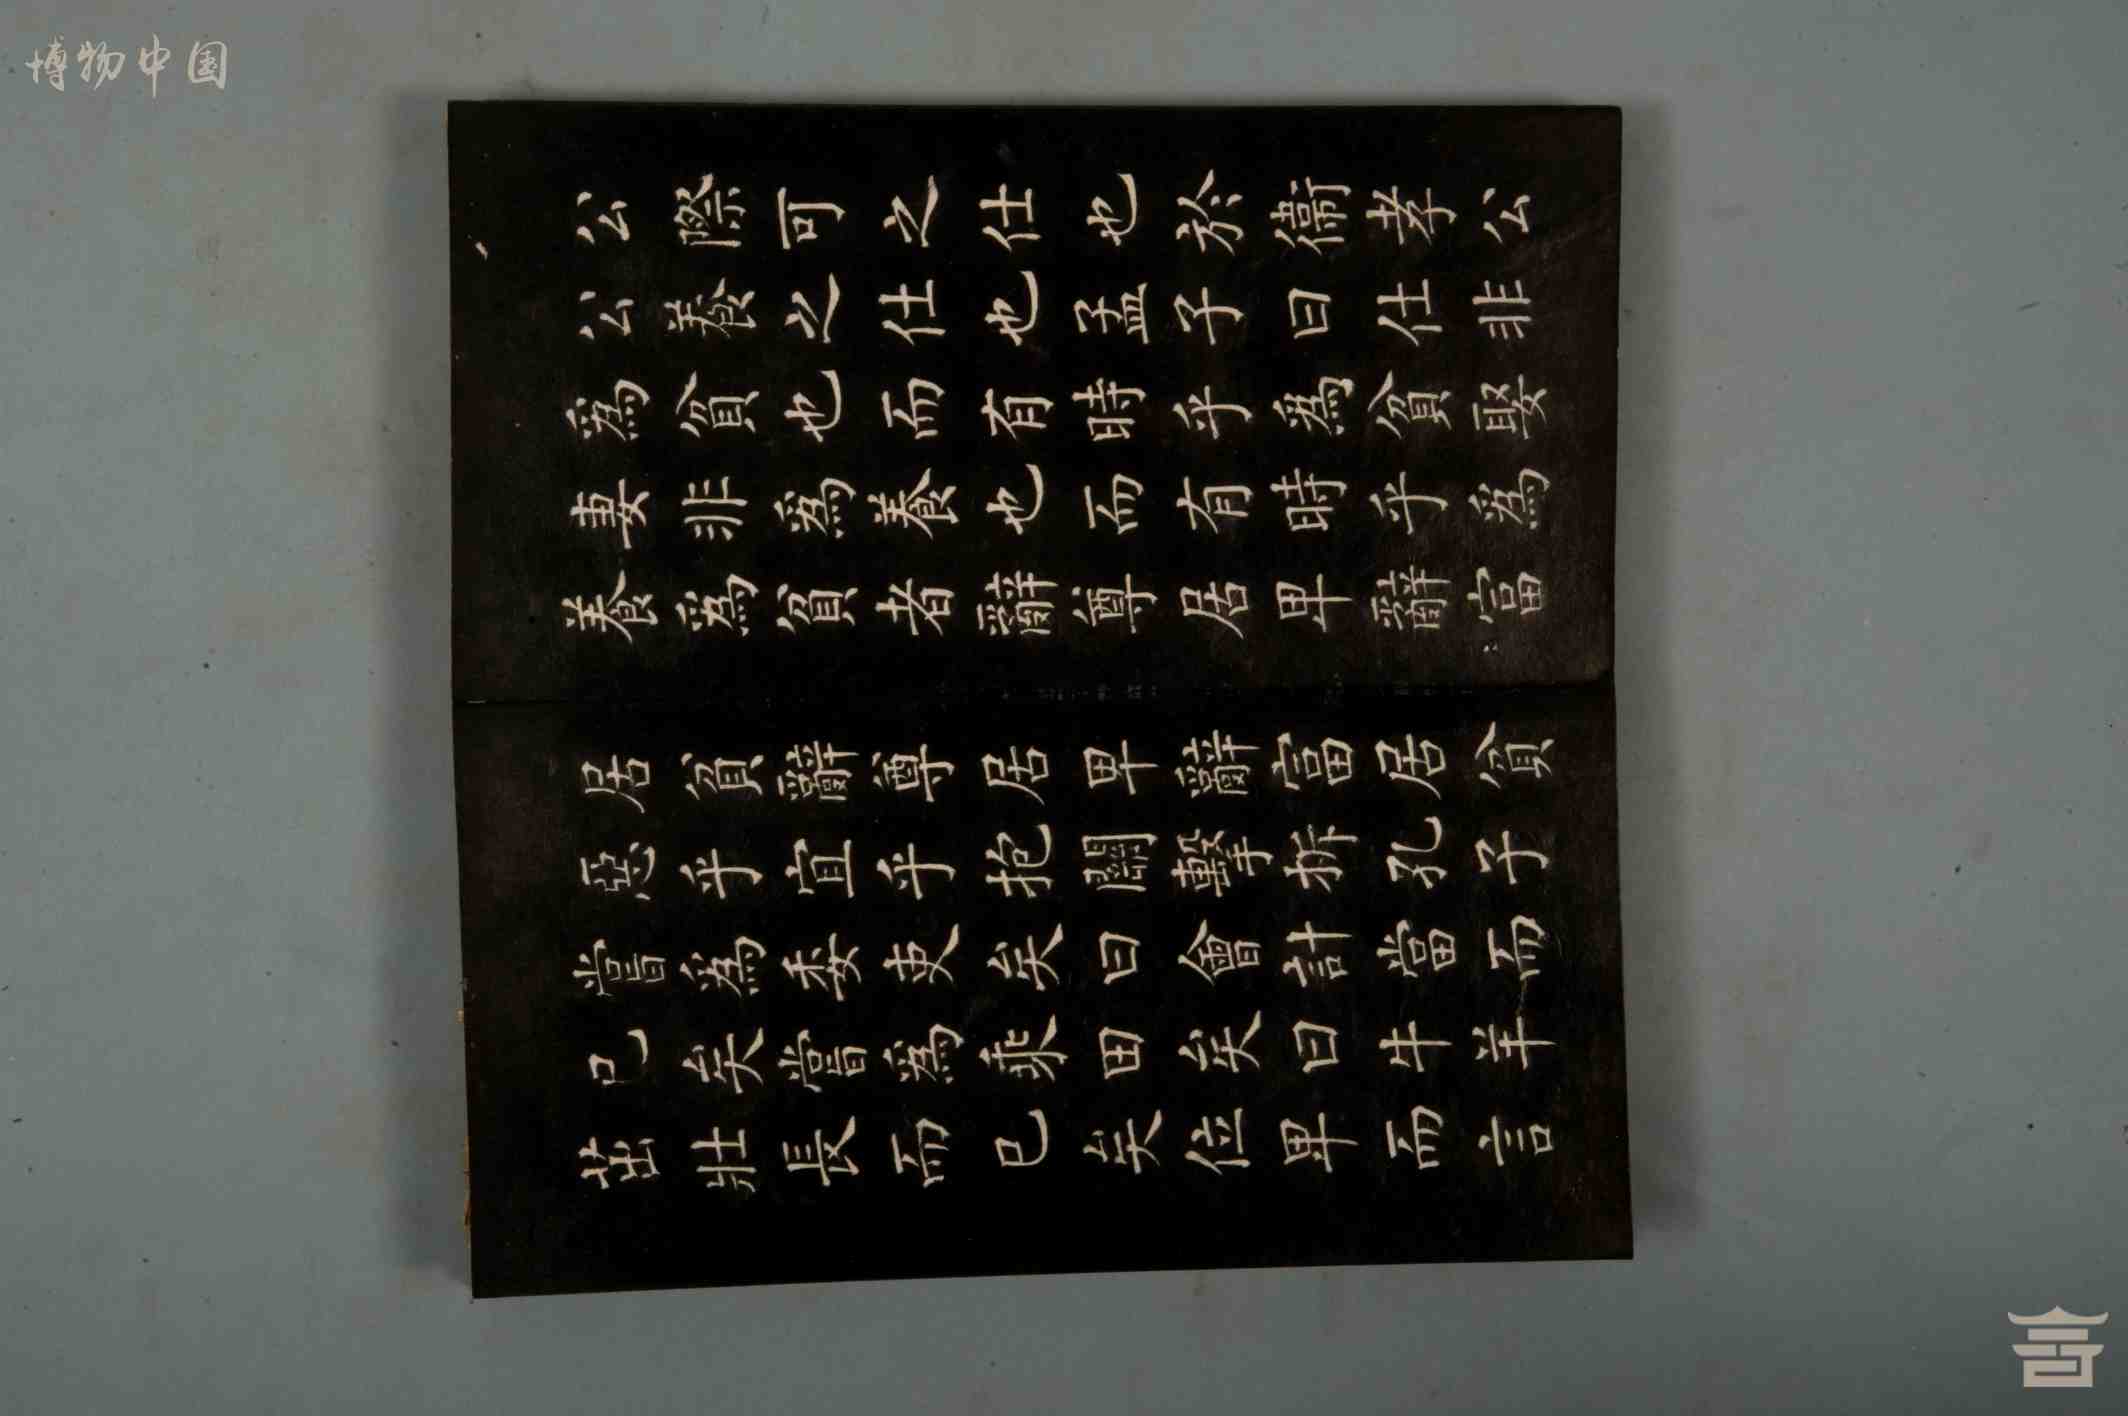 博物中国
公際可之仕也於衛孝公
公養之仕也孟子曰仕非
為貧也而有時乎為貧娶
妻非為養也而有時乎為
養為貧者辭尊居卑辭富
居貧辭尊居卑辭富居貧
惡乎宜乎抱關擊柝孔子
嘗為委吏矣曰會計當而
已矣嘗為乘田矣曰牛羊
茁壯長而已矣位卑而言